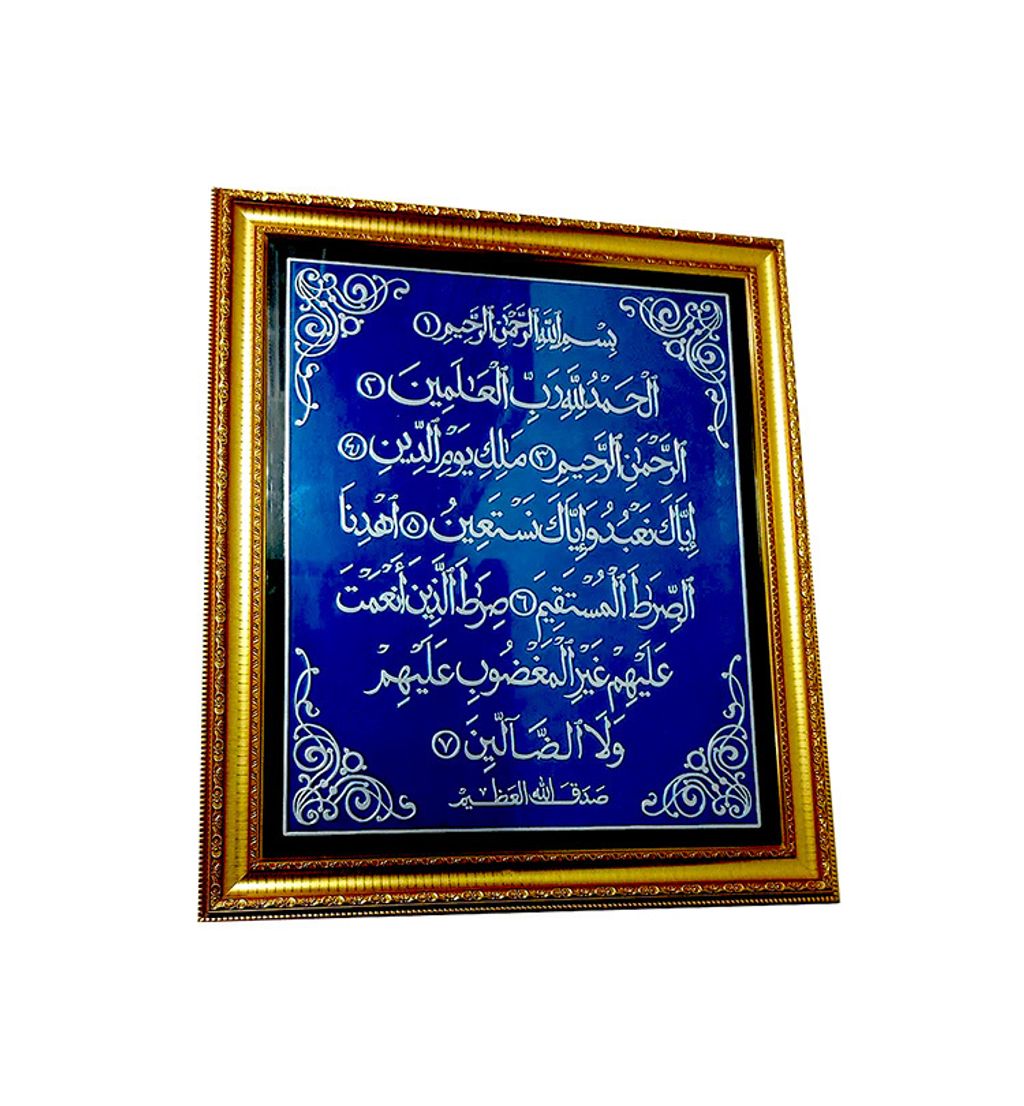 بِسْمِ ٱللَّهِ ٱلرَّحْمَٰنِ ٱلرَّحِيمِ ١
ٱلْحَمْدُ لِلَّهِ رَبِّ ٱلْعَٰلَمِينَ ٢
ٱلرَّحْمَٰنِ ٱلرَّحِيمِ ٣ مَٰلِكِ يَوْمِ ٱلدِّينِ ٤
إِيَّاكَ نَعْبُدُ وَإِيَّاكَ نَسْتَعِينُ ٥ ٱهْدِنَا
ٱلصِّرَٰطَ ٱلْمُسْتَقِيمَ ٦ صِرَٰطَ ٱلَّذِينَ أَنْعَمْتَ
عَلَيْهِمْ غَيْرِ ٱلْمَغْضُوبِ عَلَيْهِمْ
وَلَا ٱلضَّآلِّينَ ٧
صَدَقَ اللَّه العَظِيْم